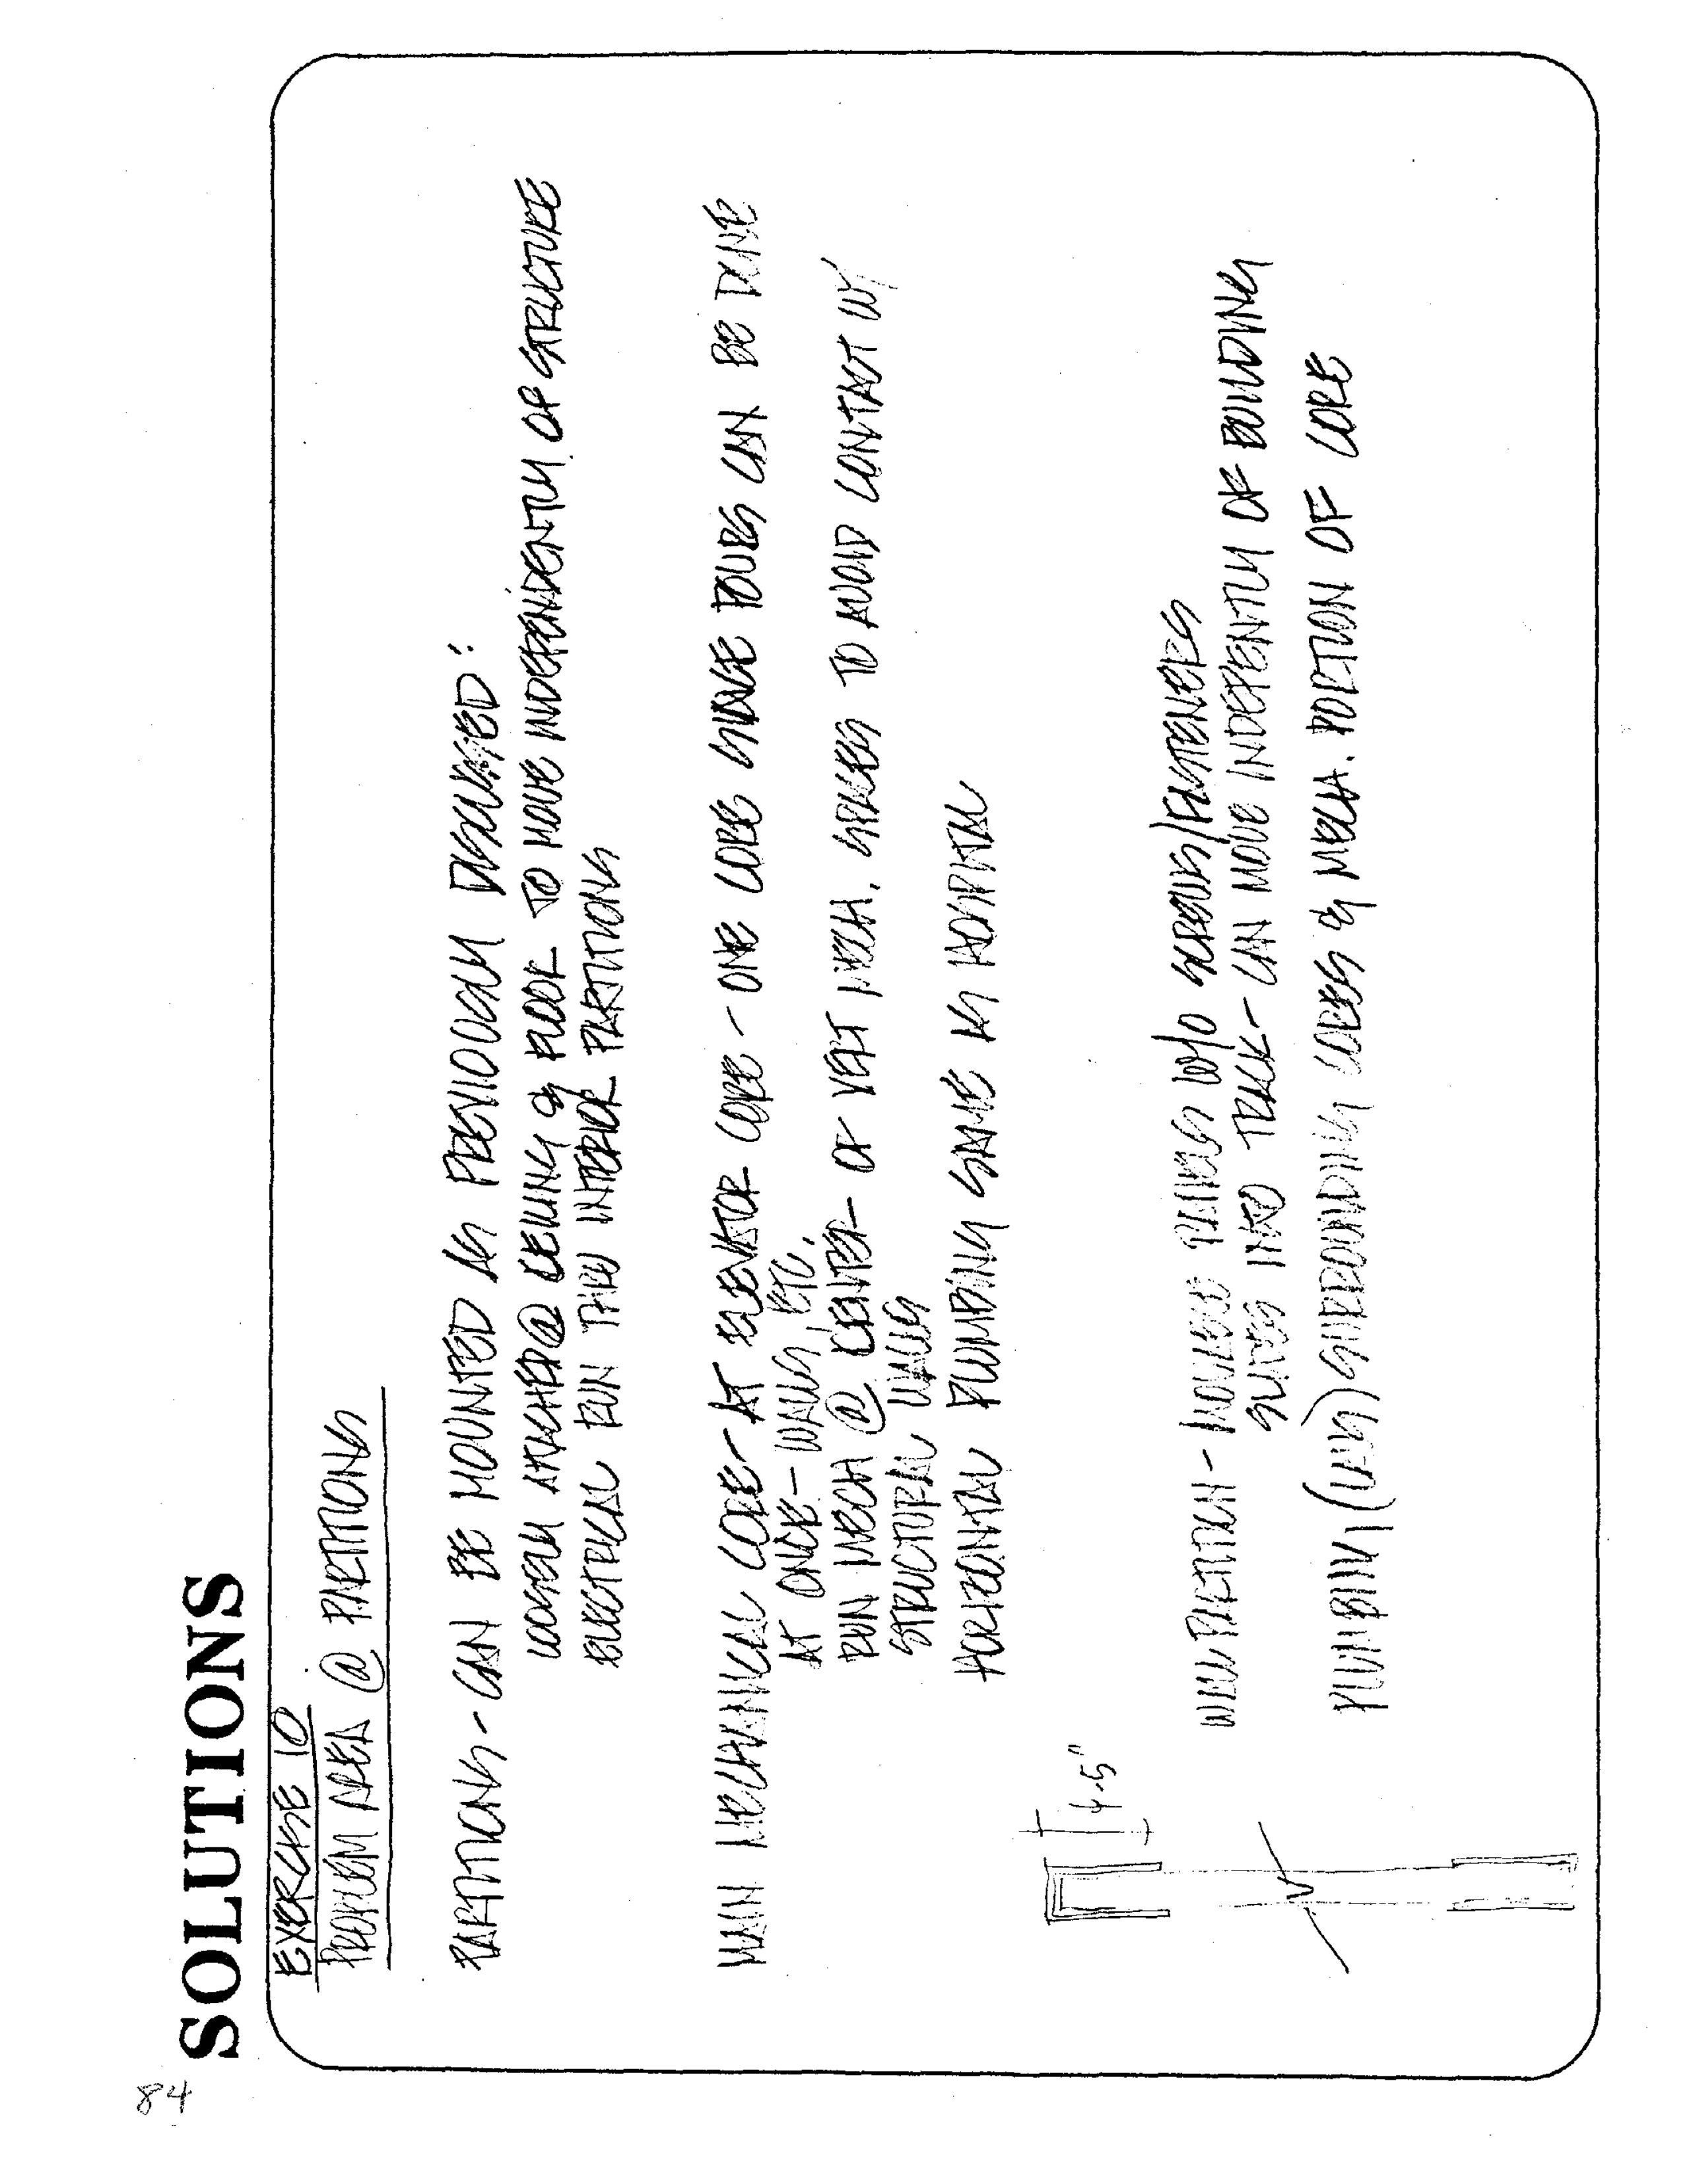 84
SOLUTIONS
EXERCISE 10
PROBLEM AREA @ PARTITIONS
PARTITIONS - CAN BE MOUNTED AS PREVIOUSLY DISCUSSED:
LOOSELY ATTACHED @ CEILING & FLOOR TO MOVE INDEPENDENTLY OF STRUCTURE
ELECTRICAL RUN THRU INTERIOR PARTITIONS
MAIN MECHANICAL CORE - AT ELEVATOR CORE - ONE CORE SINCE POURS CAN BE DONE
AT ONCE - WALLS, ETC.
RUN MECH @ CENTER OF VERT MECH. SPACES TO AVOID CONTACT W/
STRUCTURAL WALLS
HORIZONTAL PLUMBING SAME AS HOSPITAL
4-5"
WALL PARTITION - PANELS W/O SCREWS/FASTENERS
SLIDES INTO TRACK - CAN MOVE INDEPENTLY OF BUILDING
PLUMBING SURROUNDING CORES & MECH. PORTION OF CORE